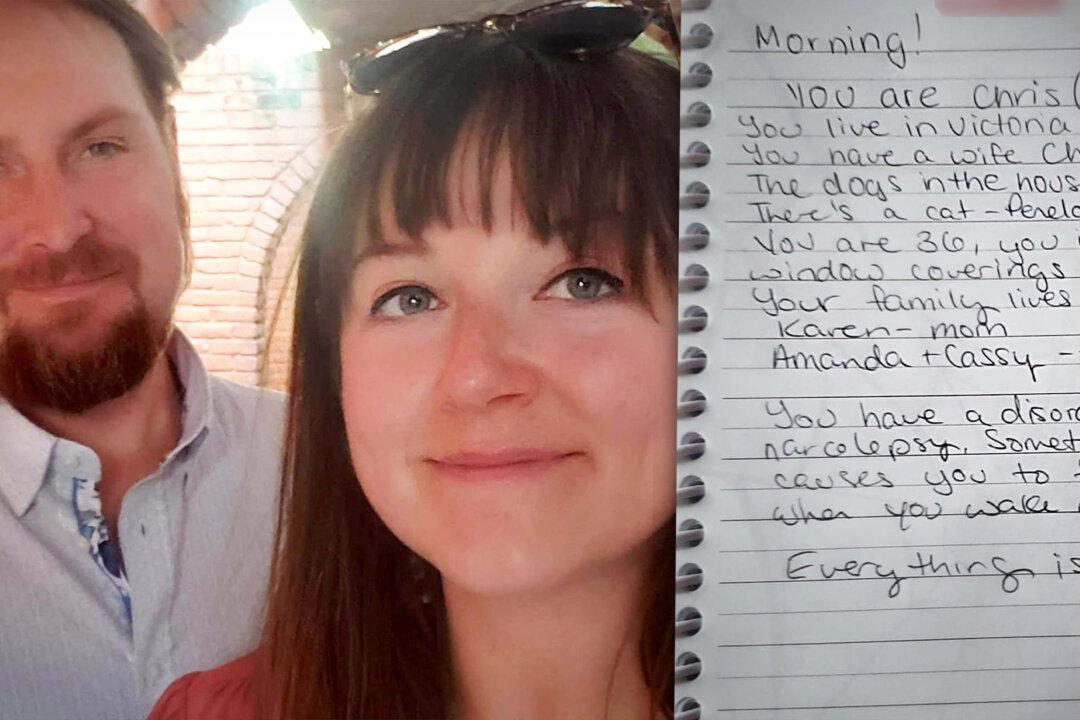 Morning!
You are Chris (
You live in Victoria
You have a wife Ch
The dogs in the hous
There's a cat - Penelo
You are 36, you i
window coverings
Your family lives
Karen - mom
Amanda + Cassy -
You have a disord
narcolepsy. Somet
causes you to
when you wake
Everything is